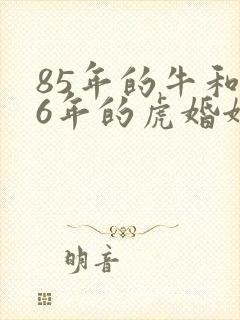 85年的牛和
6年的虎婚
明音